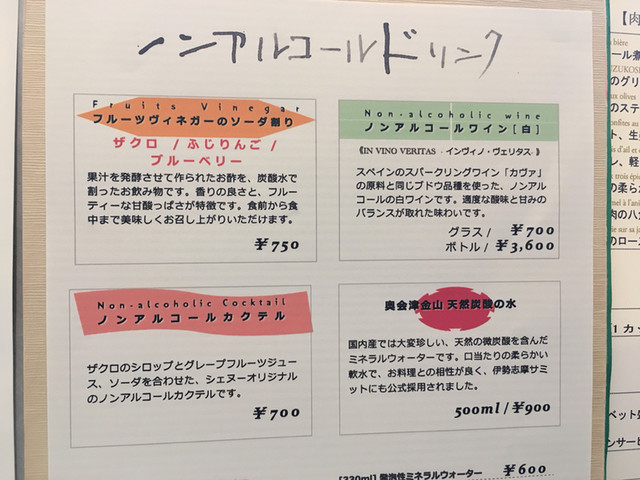 ノンアルコールドリンク
Fruits Vinegar
フルーツヴィネガーのソーダ割り
ザクロ / ふじりんご /
ブルーベリー
果汁を発酵させて作られたお酢を、炭酸水で
割ったお飲み物です。香りの良さと、フルー
ティーな甘酸っぱさが特徴です。食前から食
中まで美味しくお召し上がりいただけます。
￥750
Non-alcoholic wine
ノンアルコールワイン［白］
《IN VINO VERITAS - インヴィノ・ヴェリタス 》
スペインのスパークリングワイン「カヴァ」
の原料と同じブドウ品種を使った、ノンアル
コールの白ワインです。適度な酸味と甘みの
バランスが取れた味わいです。
グラス / ￥700
ボトル / ￥3,600
Non-alcoholic Cocktail
ノンアルコールカクテル
ザクロのシロップとグレープフルーツジュー
ス、ソーダを合わせた、シェヌーオリジナル
のノンアルコールカクテルです。
￥700
奥会津金山 天然炭酸の水
国内産では大変珍しい、天然の微炭酸を含んだ
ミネラルウォーターです。口当たりの柔らかい
軟水で、お料理との相性が良く、伊勢志摩サミ
ットにも公式採用されました。
500ml / ￥900
[330ml] 発泡性ミネラルウォーター ￥600
【肉
bière
ール煮
のグリ
aux olives
のステ
ト、生
ム、軽
trois épic
の柔らか
mel à l'ani
肉の八
e sur sa ja
のロース
1 カッ
ペット
ンサービ